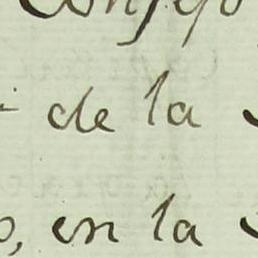 Consejo
de la
en la